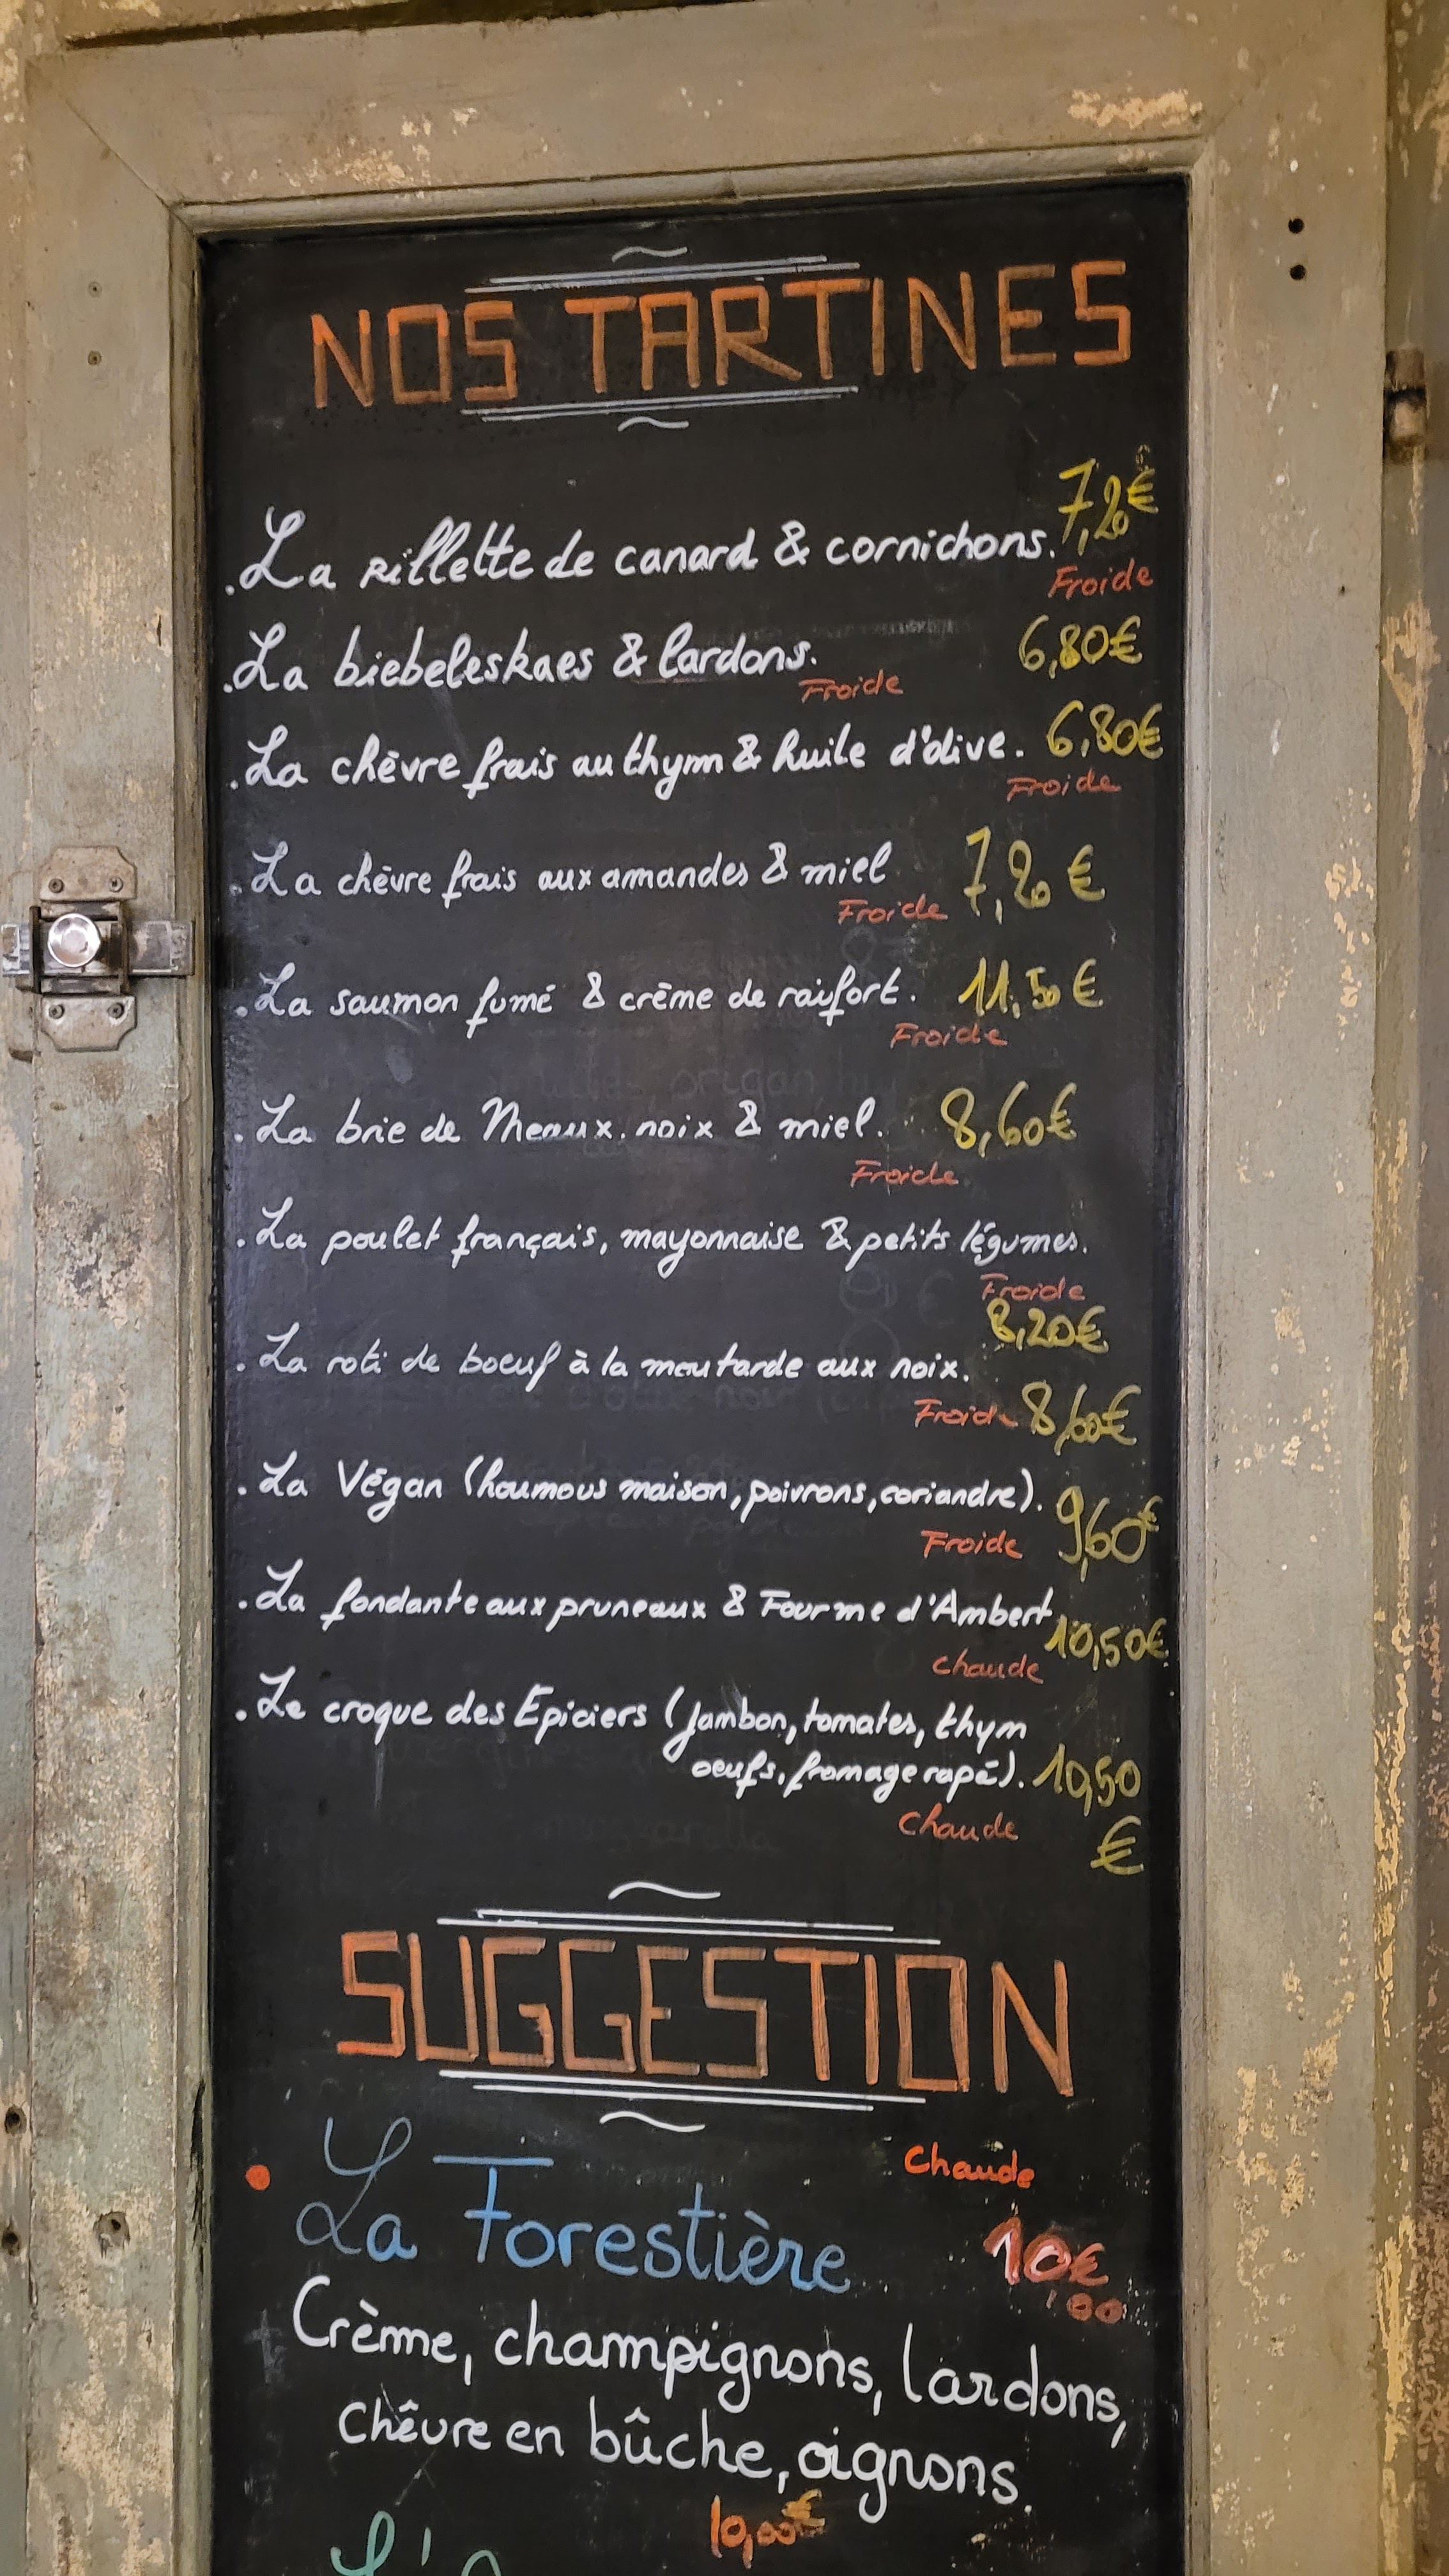 NOS TARTINES
.La rillette de canard & cornichons. 7,20€
Froide
.La biebeleskaes & lardons. 6,80€
Froide
.La chèvre frais au thym & huile d'olive. 6,80€
Froide
.La chèvre frais aux amandes & miel 7,20 €
Froide
.La saumon fumé & crème de raifort. 11,50 €
Froide
.La brie de Meaux, noix & miel. 8,60€
Froide
.La poulet français, mayonnaise & petits légumes.
Froide
8,20€
.La roti de boeuf à la moutarde aux noix.
Froide 8,60€
.La Végan (houmous maison, poivrons, coriandre).
Froide 9,60€
.La fondante aux pruneaux & Fourme d'Ambert 10,50€
Chaude
.Le croque des Epiciers (jambon, tomates, thym
oeufs, fromage rapé). 10,50
Chaude €
SUGGESTION
Chaude
La Forestière 10€
,00
Crème, champignons, lardons,
chêvre en bûche, oignons.
10,00€
L'